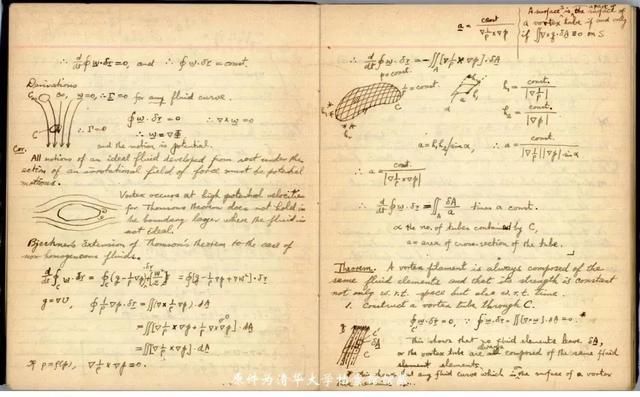 ∴ d/dt ∮ w·δr = 0, and ∴ ∮ w·δr = const.
Derivations
C₀, w=0, ∴ Γ=0 for any fluid curve.
∮ w·δr = 0 ∴ ∇×w = 0
C ∴ Γ=0 ∴ w = ∇Φ
and the motion is potential.
Cor.
All motions of an ideal fluid developed from rest under the
action of an irrotational field of force must be potential
motions.
Vortex occurs at high potential velocities
for Thomson's theorem does not hold in
the boundary layer where the fluid is
not ideal.
Bjerknes' Extension of Thomson's theorem to the case of
non homogeneous fluids.
d/dt ∮ w·δr =
g = ∇U, ∮ 1/ρ ∇p·δr = ∬(∇×1/ρ ∇p)·δA
= ∬[∇1/ρ×∇p + 1/ρ ∇×∇p]·δA
= ∬[∇1/ρ×∇p]·δA
If ρ=f(p), ∇1/ρ×∇p = 0.
a = const/∇1/ρ×∇p
A surface is the surface of
a vortex tube if and only
if ∬∇×q·δA ≡ 0 on S
∴ d/dt ∮ w·δr = -∬[∇1/ρ×∇p]·δA
p=const.
1/ρ=const.
h₁ = const./|∇1/ρ|
h₂ = const./|∇p|
a = h₁h₂/sin α, ∴ a = const./|∇1/ρ||∇p| sin α
∴ a = const./|∇1/ρ×∇p|
∴ d/dt ∮ w·δr = ∬ δA/a times a const.
∝ the no. of tubes contained by C,
a = area of cross-section of the tube.
Theorem. A vortex filament is always composed of the
same fluid elements and that its strength is constant
not only w.r.t. space but also w.r.t. time.
1. Construct a vortex tube through C.
∮ w·δr = 0, ∵ ∮ w·δr = ∬(∇×w)·δA = 0.
This shows that no fluid elements leave δA,
or the vortex tube are always composed of the same fluid
element elements.
This shows that any fluid curve which is on the surface of a vortex
原件为清华大学档案馆馆藏